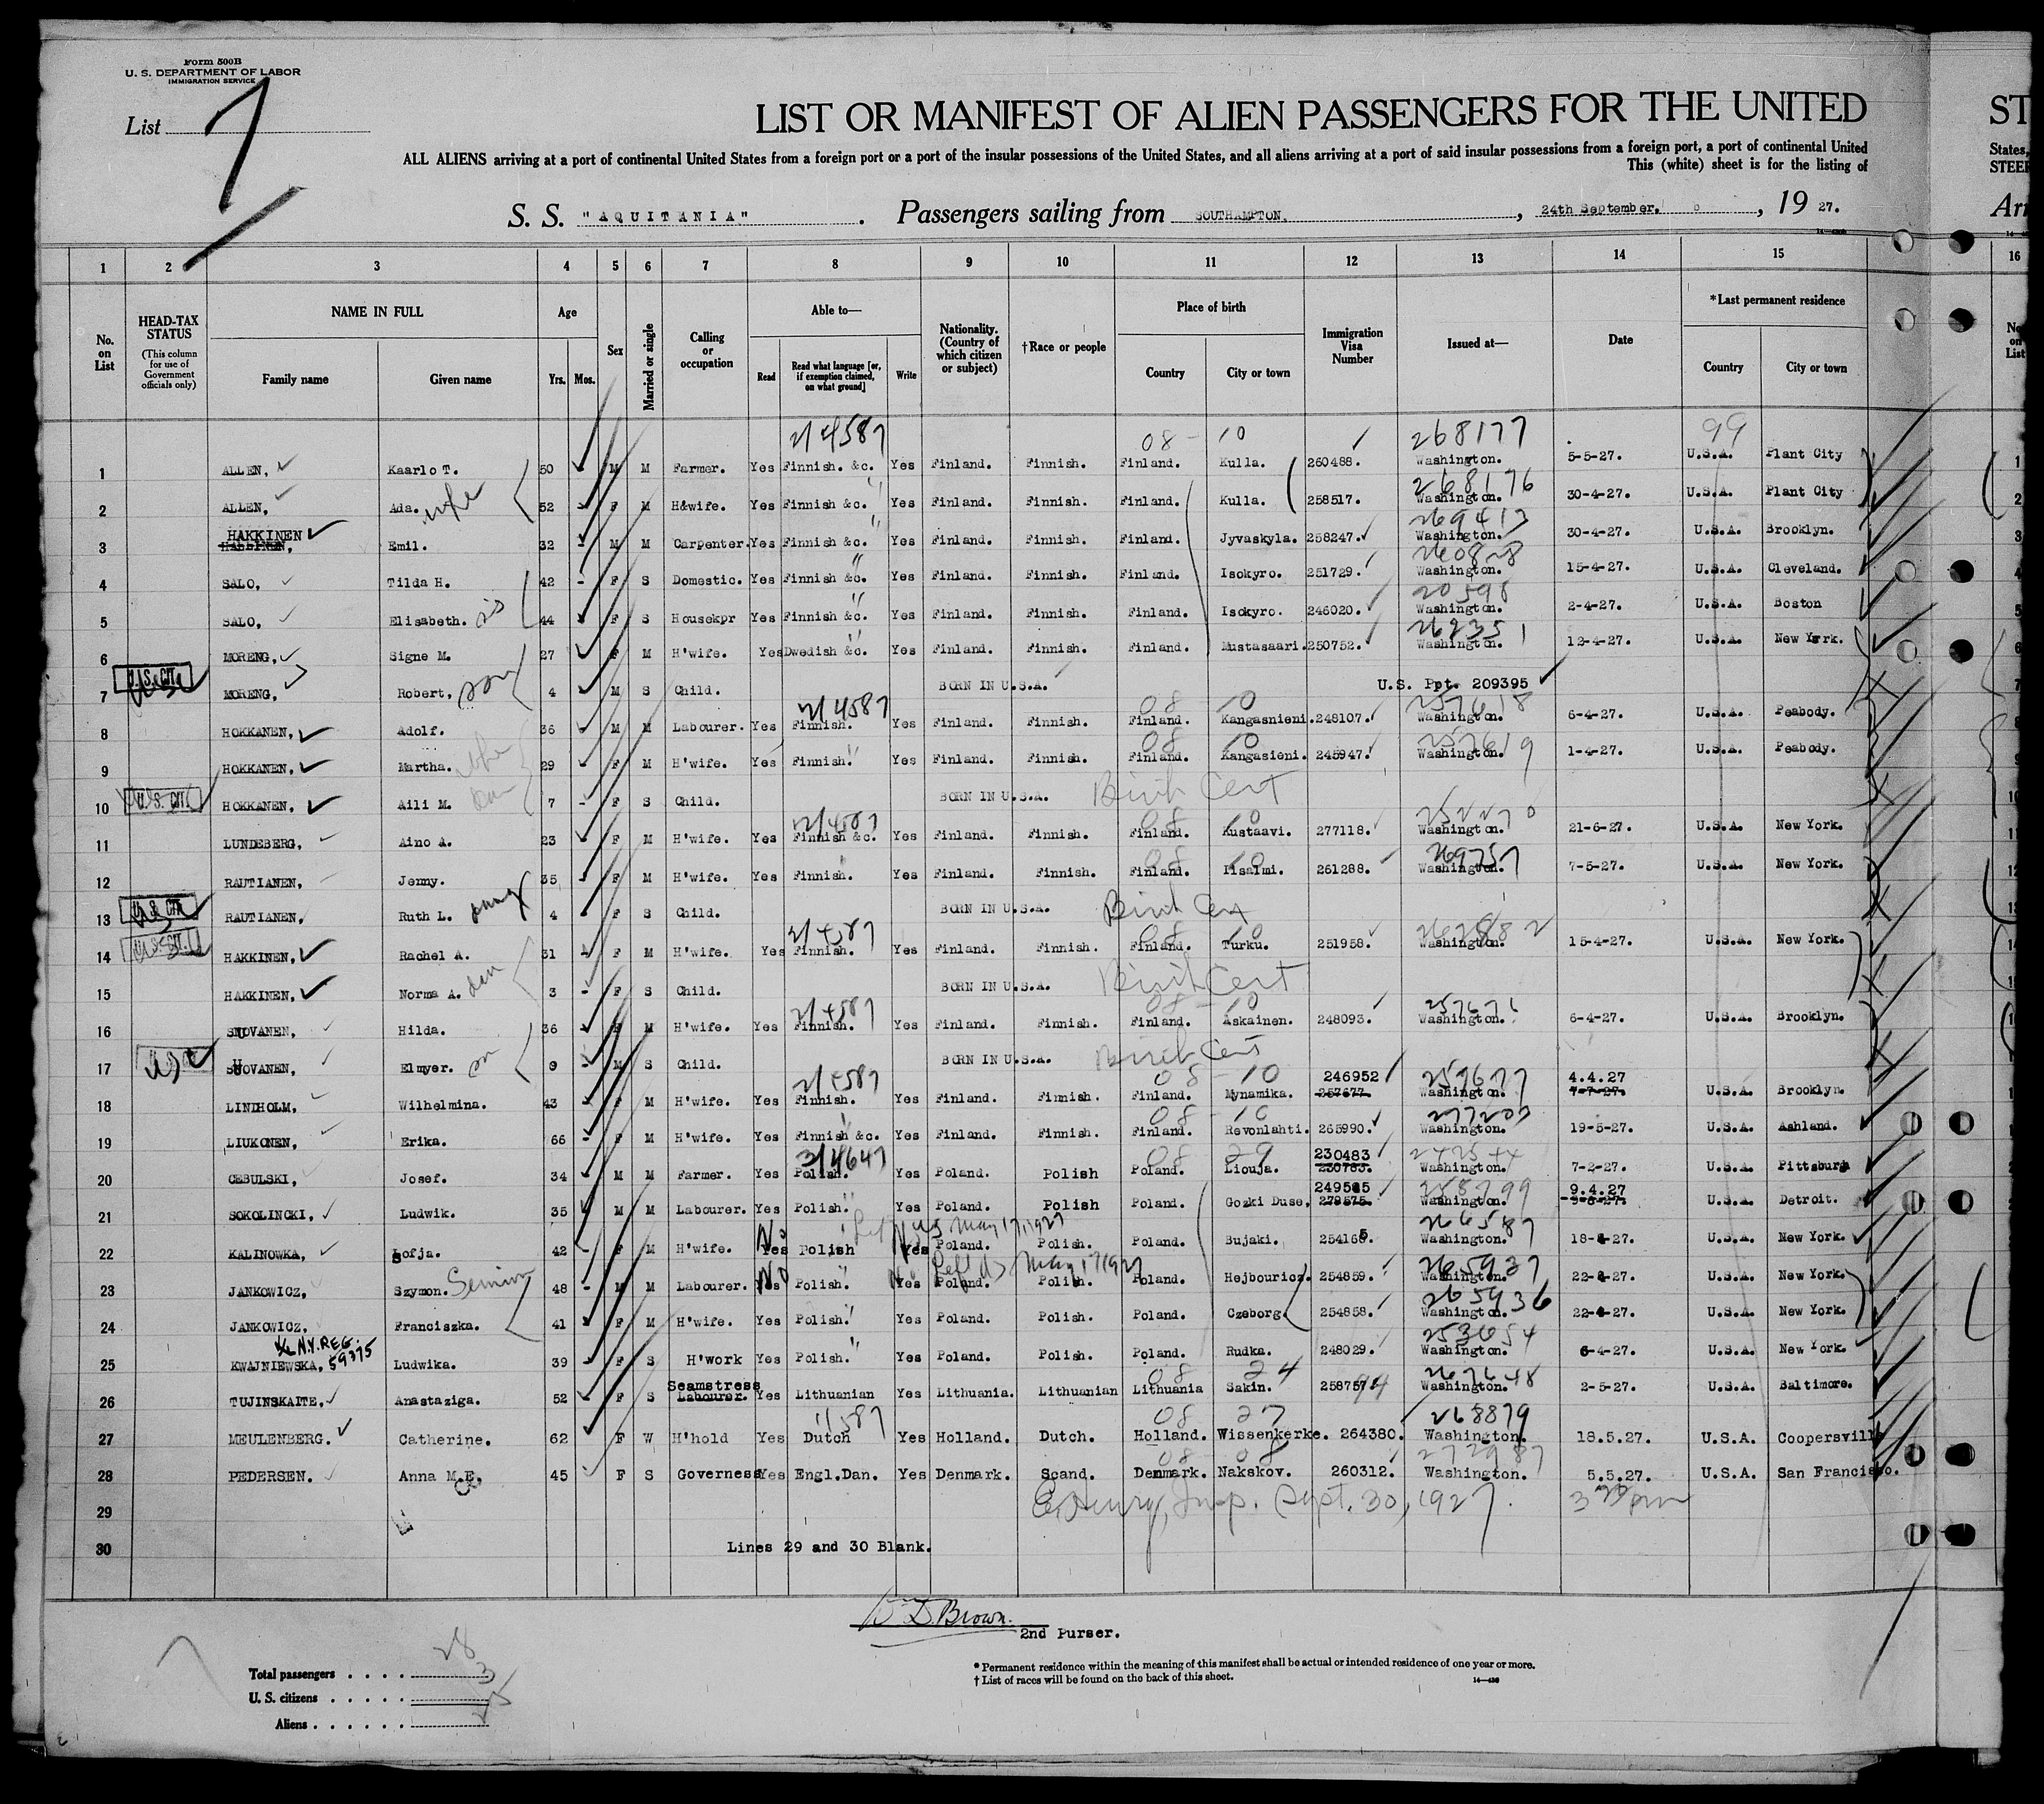 Form 500B
U. S. DEPARTMENT OF LABOR
IMMIGRATION SERVICE
List 7
LIST OR MANIFEST OF ALIEN PASSENGERS FOR THE UNITED
ST
ALL ALIENS arriving at a port of continental United States from a foreign port or a port of the insular possessions of the United States, and all aliens arriving at a port of said insular possessions from a foreign port, a port of continental United
States,
This (white) sheet is for the listing of
STEER
S. S. "AQUITANIA". Passengers sailing from SOUTHAMPTON, 24th September, 19 27.
Arr
1 2 3 4 5 6 7 8 9 10 11 12 13 14 15 16
No. on List
HEAD-TAX STATUS
(This column for use of Government officials only)
NAME IN FULL
Family name Given name
Age
Yrs. Mos.
Sex
Married or single
Calling or occupation
Able to—
Read
Read what language [or, if exemption claimed, on what ground]
Write
Nationality. (Country of which citizen or subject)
†Race or people
Place of birth
Country City or town
Immigration Visa Number
Issued at—
Date
*Last permanent residence
Country City or town
2/4587 08 - 10 268177 99
1 ALLEN, Kaarlo T. 50 M M Farmer. Yes Finnish. &c. Yes Finland. Finnish. Finland. Kulla. 260488. Washington. 5-5-27. U.S.A. Plant City
268176
2 ALLEN, Ada. wife 52 F M H&wife. Yes Finnish &c. Yes Finland. Finnish. Finland. Kulla. 258517. Washington. 30-4-27. U.S.A. Plant City
HAKKINEN 269413
3 Emil. 32 - M M Carpenter. Yes Finnish &c. Yes Finland. Finnish. Finland. Jyvaskyla. 258247. Washington. 30-4-27. U.S.A. Brooklyn.
260828
4 SALO, Tilda H. 42 - F S Domestic. Yes Finnish &c. Yes Finland. Finnish. Finland. Isokyro. 251729. Washington. 15-4-27. U.S.A. Cleveland.
5 SALO, Elisabeth. sis 44 F S Housekpr Yes Finnish &c. Yes Finland. Finnish. Finland. Isokyro. 246020. Washington. 2-4-27. U.S.A. Boston
6 MORENG, Signe M. 27 F M H'wife. Yes Dwedish &c. Yes Finland. Finnish. Finland. Mustasaari. 250752. Washington. 12-4-27. U.S.A. New York.
U.S. CIT.
7 MORENG, Robert, son 4 M S Child. BORN IN U.S.A. U.S. Ppt. 209395
2/4587 08 - 10 257618
8 HOKKANEN, Adolf. 36 M M Labourer. Yes Finnish. Yes Finland. Finnish. Finland. Kangasnieni. 248107. Washington. 6-4-27. U.S.A. Peabody.
08 10 257619
9 HOKKANEN, Martha. wife 29 F M H'wife. Yes Finnish. Yes Finland. Finnish. Finland. Kangasieni. 245947. Washington. 1-4-27. U.S.A. Peabody.
U.S. CIT.
10 HOKKANEN, Aili M. 7 - F S Child. BORN IN U.S.A. Birth Cert
2/4587 08 10
11 LUNDEBERG, Aino A. 23 F M H'wife. Yes Finnish &c. Yes Finland. Finnish. Finland. Kustaavi. 277118. Washington. 21-6-27. U.S.A. New York.
08 10 269757
12 RAUTIANEN, Jenny. 35 F M H'wife. Yes Finnish. Yes Finland. Finnish. Finland. Iisalmi. 261288. Washington. 7-5-27. U.S.A. New York.
U.S. CIT.
13 RAUTIANEN, Ruth L. 4 F S Child. BORN IN U.S.A. Birth Cer
U.S. CIT. 2/4587 08 10
14 HAKKINEN, Rachel A. 31 F M H'wife. Yes Finnish. Yes Finland. Finnish. Finland. Turku. 251958. Washington. 15-4-27. U.S.A. New York.
15 HAKKINEN, Norma A. dau 3 - F S Child. BORN IN U.S.A. Birth Cert
2/4587 08 - 10 257676
16 Hilda. 36 F M H'wife. Yes Finnish. Yes Finland. Finnish. Finland. Askainen. 248093. Washington. 6-4-27. U.S.A. Brooklyn.
17 Elmyer. son 9 M S Child. BORN IN U.S.A. Birth Cert
2/4587 08 - 10 246952 257677 4.4.27
18 LINDHOLM, Wilhelmina. 43 F M H'wife. Yes Finnish. Yes Finland. Finnish. Finland. Mynamika. 257677. Washington. 7-7-27. U.S.A. Brooklyn.
08 - 10 277207
19 LIUKONEN, Erika. 66 - F M H'wife. Yes Finnish &c. Yes Finland. Finnish. Finland. Revonlahti. 265990. Washington. 19-5-27. U.S.A. Ashland.
3/4647 08 29 230483
20 CEBULSKI, Josef. 34 M M Farmer. Yes Polish. Yes Poland. Polish Poland. Liouja. 230783. Washington. 7-2-27. U.S.A. Pittsburg
249515 258799 9.4.27
21 SOKOLINCKI, Ludwik. 35 M M Labourer. Yes Polish. Yes Poland. Polish Poland. Gozki Duse, 278575. Washington. U.S.A. Detroit.
No Left US May 17, 1927 266587
22 KALINOWKA, Lofja. 42 - F M H'wife. Yes Polish Yes Poland. Polish. Poland. Bujaki. 254165. Washington. 18-4-27. U.S.A. New York.
No No Left US May 17 1927 265937
23 JANKOWICZ, Szymon. 48 - M M Labourer. Yes Polish. Yes Poland. Polish. Poland. Hejbouricz. 254859. Washington. 22-4-27. U.S.A. New York.
265936
24 JANKOWICZ, Franciszka. 41 F M H'wife. Yes Polish. Yes Poland. Polish. Poland. Czeborg. 254858. Washington. 22-4-27. U.S.A. New York.
N.Y. REG. 59375 253654
25 KWAJNIEWSKA, Ludwika. 39 - F S H'work Yes Polish. Yes Poland. Polish. Poland. Rudka. 248029. Washington. 6-4-27. U.S.A. New York.
Seamstress 08 24 267648
26 TUJINSKAITE, Anastaziga. 52 F S Labourer. Yes Lithuanian Yes Lithuania. Lithuanian Lithuania Sakin. 258757 Washington. 2-5-27. U.S.A. Baltimore.
1/587 08 27 268879
27 MEULENBERG. Catherine. 62 F W H'hold Yes Dutch Yes Holland. Dutch. Holland. Wissenkerke. 264380. Washington. 18.5.27. U.S.A. Coopersville
08 08 272987
28 PEDERSEN. Anna M.E. 45 F S Governess Yes Engl.Dan. Yes Denmark. Scand. Denmark. Nakskov. 260312. Washington. 5.5.27. U.S.A. San Francisco.
Insp. Sept. 30, 1927. 3 pm
29
30 Lines 29 and 30 Blank.
D. Brown.
2nd Purser.
Total passengers . . . . 28
U. S. citizens . . . . . 3
Aliens . . . . . . 25
* Permanent residence within the meaning of this manifest shall be actual or intended residence of one year or more.
† List of races will be found on the back of this sheet.